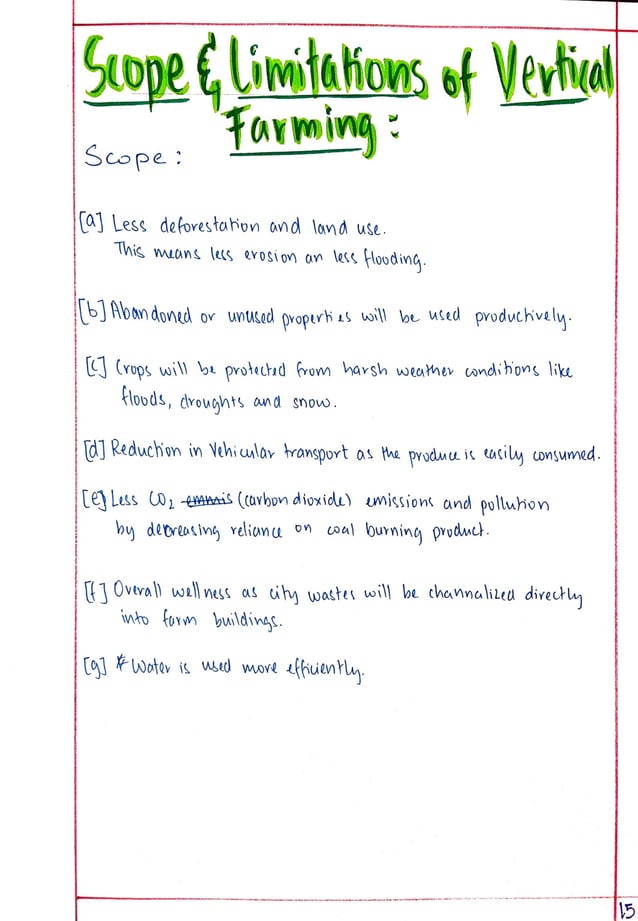 Scope & Limitations of Vertical
Farming:
Scope:
[a] Less deforestation and land use.
This means less erosion an less flooding.
[b] Abandoned or unused properties will be used productively.
[c] Crops will be protected from harsh weather conditions like
floods, droughts and snow.
[d] Reduction in Vehicular transport as the produce is easily consumed.
[e] Less CO2 emmis (carbon dioxide) emissions and pollution
by decreasing reliance on coal burning product.
[f] Overall wellness as city wastes will be channalized directly
into farm buildings.
[g] Water is used more efficiently.
15